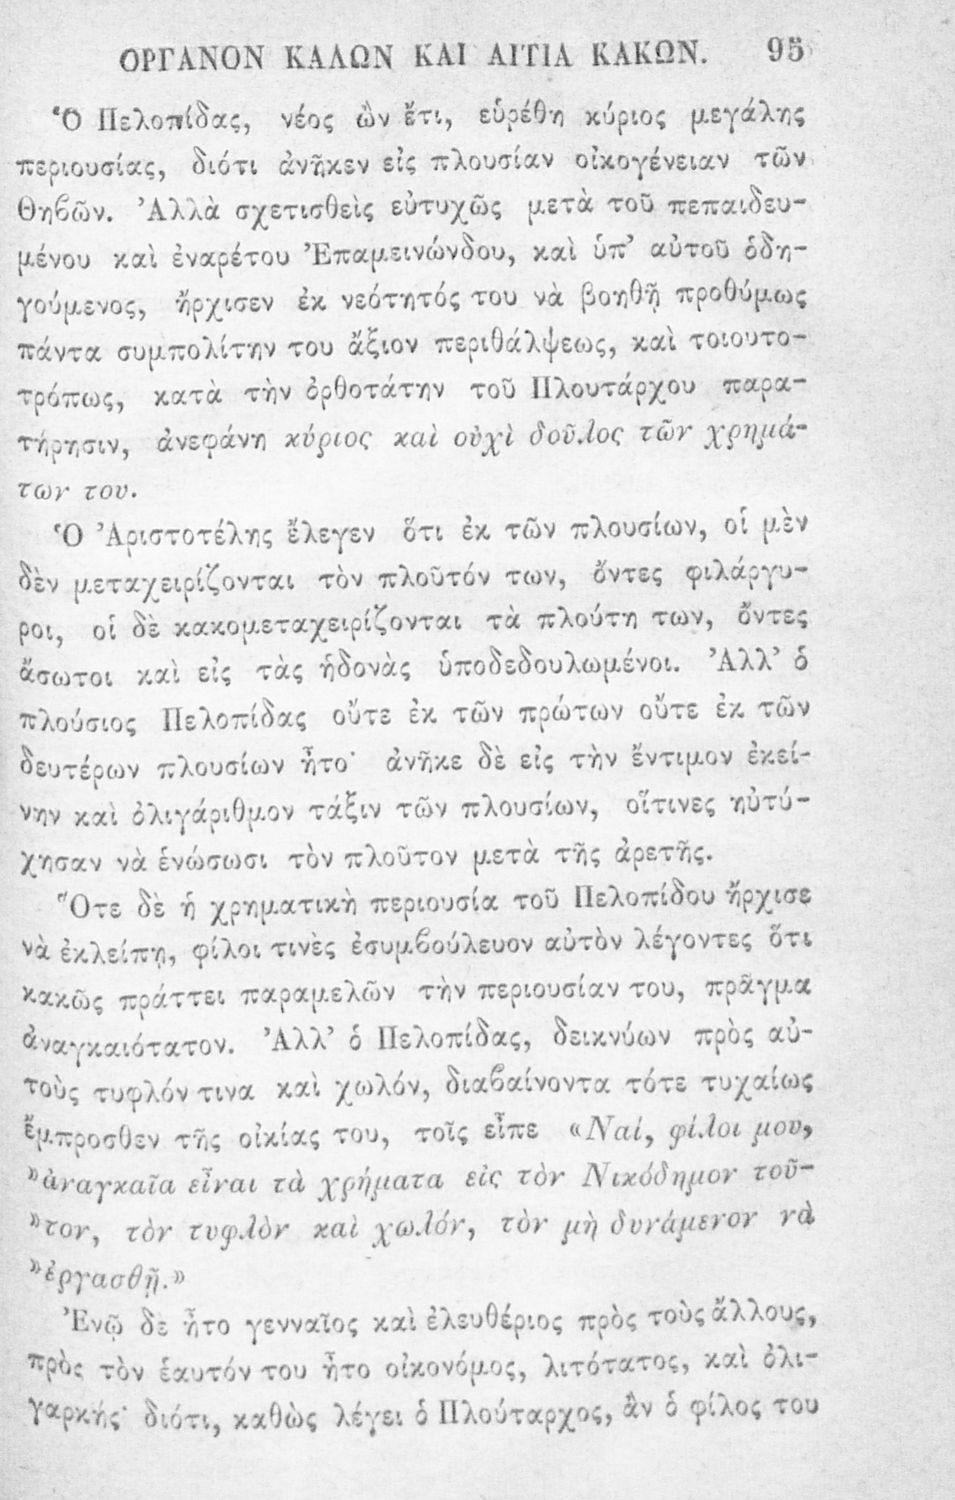 ΟΡΓΑΝΟΝ ΚΑΛΩΝ ΚΑΙ ΑΙΤΙΑ ΚΑΚΩΝ. 95
Ὁ Πελοπίδας, νέος ὢν ἔτι, εὑρέθη κύριος μεγάλης
περιουσίας, διότι ἀνῆκεν εἰς πλουσίαν οἰκογένειαν τῶν
Θηβῶν. Ἀλλὰ σχετισθεὶς εὐτυχῶς μετὰ τοῦ πεπαιδευ-
μένου καὶ ἐναρέτου Ἐπαμεινώνδου, καὶ ὑπ’ αὐτοῦ ὁδη-
γούμενος, ἤρχισεν ἐκ νεότητός του νὰ βοηθῇ προθύμως
πάντα συμπολίτην του ἄξιον περιθάλψεως, καὶ τοιουτο-
τρόπως, κατὰ τὴν ὀρθοτάτην τοῦ Πλουτάρχου παρα-
τήρησιν, ἀνεφάνη κύριος καὶ οὐχὶ δοῦλος τῶν χρημά-
των του.
Ὁ Ἀριστοτέλης ἔλεγεν ὅτι ἐκ τῶν πλουσίων, οἱ μὲν
δὲν μεταχειρίζονται τὸν πλοῦτόν των, ὄντες φιλάργυ-
ροι, οἱ δὲ κακομεταχειρίζονται τὰ πλούτη των, ὄντες
ἄσωτοι καὶ εἰς τὰς ἡδονὰς ὑποδεδουλωμένοι. Ἀλλ’ ὁ
πλούσιος Πελοπίδας οὔτε ἐκ τῶν πρώτων οὔτε ἐκ τῶν
δευτέρων πλουσίων ἦτο· ἀνῆκε δὲ εἰς τὴν ἔντιμον ἐκεί-
νην καὶ ὀλιγάριθμον τάξιν τῶν πλουσίων, οἵτινες ηὐτύ-
χησαν νὰ ἑνώσωσι τὸν πλοῦτον μετὰ τῆς ἀρετῆς.
Ὅτε δὲ ἡ χρηματικὴ περιουσία τοῦ Πελοπίδου ἤρχισε
νὰ ἐκλείπῃ, φίλοι τινὲς ἐσυμβούλευον αὐτὸν λέγοντες ὅτι
κακῶς πράττει παραμελῶν τὴν περιουσίαν του, πρᾶγμα
ἀναγκαιότατον. Ἀλλ’ ὁ Πελοπίδας, δεικνύων πρὸς αὐ-
τοὺς τυφλόν τινα καὶ χωλόν, διαβαίνοντα τότε τυχαίως
ἔμπροσθεν τῆς οἰκίας του, τοῖς εἶπε «Ναί, φίλοι μου,
»ἀναγκαῖα εἶναι τὰ χρήματα εἰς τὸν Νικόδημον τοῦ-
»τον, τὸν τυφλὸν καὶ χωλόν, τὸν μὴ δυνάμενον νὰ
»ἐργασθῇ.»
Ἐνῷ δὲ ἦτο γενναῖος καὶ ἐλευθέριος πρὸς τοὺς ἄλλους,
πρὸς τὸν ἑαυτόν του ἦτο οἰκονόμος, λιτότατος, καὶ ὀλι-
γαρκής· διότι, καθὼς λέγει ὁ Πλούταρχος, ἂν ὁ φίλος του